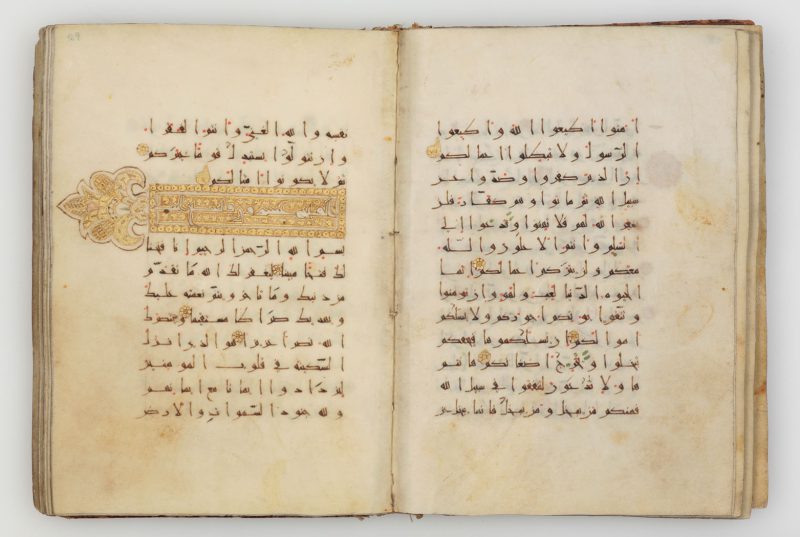 امنوا اطيعوا الله واطيعوا
الرسول ولا تبطلوا اعملكم
ان الذين كفروا وصدوا عن
سبيل الله ثم ماتوا وهم كفار فلن
يغفر الله لهم فلا تهنوا وتدعوا الى
السلم وانتم الاعلون والله
معكم ولن يتركم اعملكم انما
الحيوة الدنيا لعب ولهو وان تومنوا
وتتقوا يوتكم اجوركم ولا يسلكم
امولكم ان يسلكموها فيحفكم
تبخلوا ويخرج اضغنكم هانتم
هاولا تدعون لتنفقوا في سبيل الله
فمنكم من يبخل ومن يبخل فانما يبخل عن
نفسه والله الغني وانتم الفقرا
وان تتولوا يستبدل قوما غيركم
ثم لا يكونوا امثلكم
بسم الله الرحمن الرحيم انا فتحنا
لك فتحا مبينا ليغفر لك الله ما تقدم
من ذنبك وما تاخر ويتم نعمته عليك
ويهديك صرطا مستقيما وينصرك
الله نصرا عزيزا هو الذي انزل
السكينة في قلوب المومنين
ليزدادوا ايمانا مع ايمانهم
ولله جنود السموات والارض